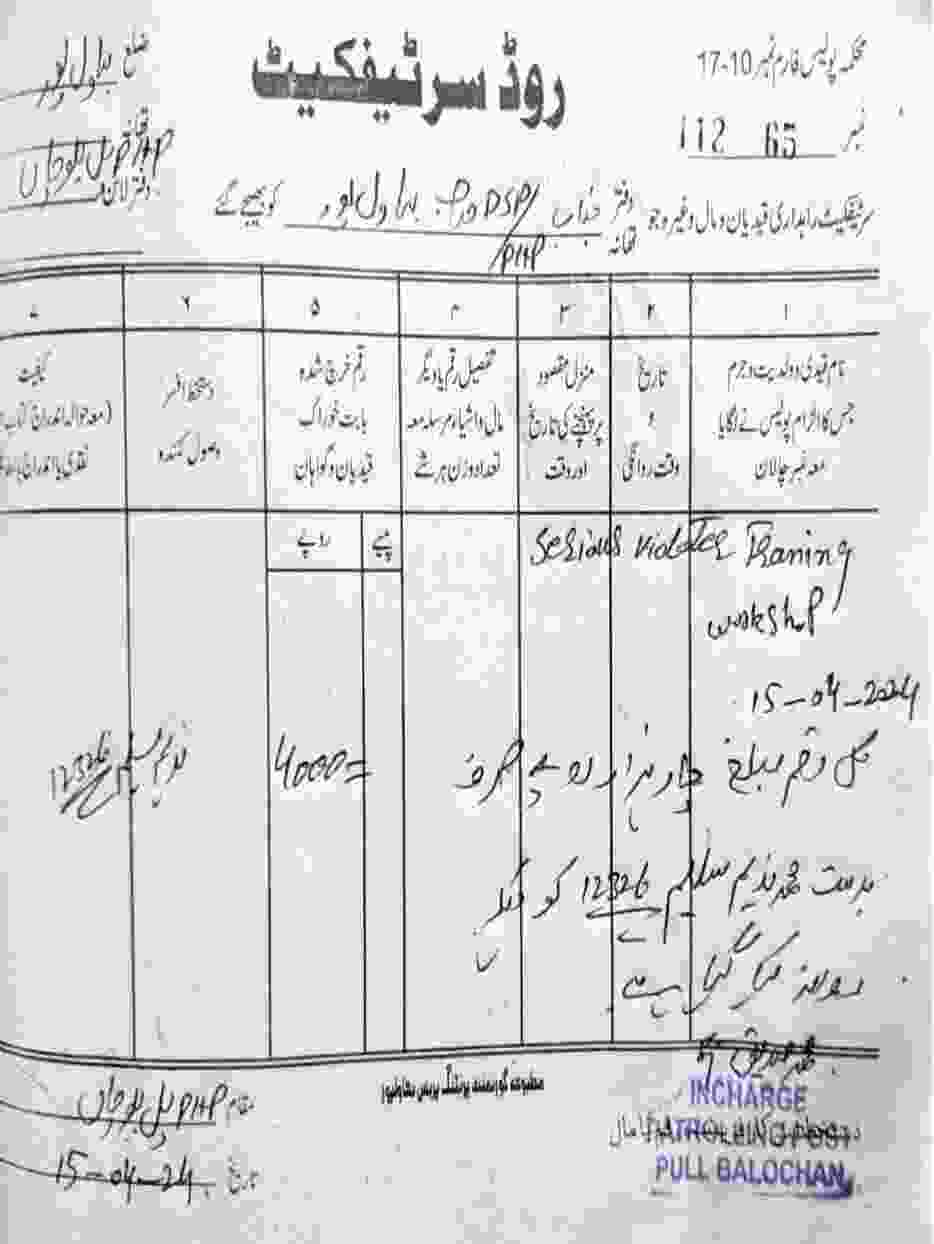 محکمہ پولیس فارم نمبر 10-17
روڈ سرٹیفکیٹ
ضلع بہاولپور
نمبر 65 112
تھانہ
دفتر لائن PHP پل بلوچاں
سرٹیفکیٹ راہداری قیدیان و مال وغیرہ جو دفتر تھانہ جناب DSP/PHP صاحب بہاولپور کو بھیجے گئے
۱ ۲ ۳ ۴ ۵ ۶ ۷
نام قیدی و ولدیت و جرم جس کا الزام پولیس نے لگایا معہ نمبر چالان
تاریخ و وقت روانگی
منزل مقصود پر پہنچنے کی تاریخ اور وقت
تفصیل رقم یا دیگر مال و اشیاء مرسلہ معہ تعداد وزن ہر شے
رقم خرچ شدہ بابت خوراک قیدیان و گواہان
دستخط افسر وصول کنندہ
کیفیت (معہ حوالہ اندراج کتاب نقدی یا اندراج
روپے پیسے
Serious violator Traning
workshop
15-04-2024
کل رقم مبلغ چار ہزار روپے صرف
4000=
ندیم سلیم 12326
بدست محمد ندیم سلیم 12326 کو دیکر
روانہ کیا گیا ہے
مطبوعہ گورنمنٹ پرنٹنگ پریس بہاولپور
INCHARGE
PATROLLING POST
PULL BALOCHAN
مقام PHP پل بلوچاں
تاریخ 15-04-24